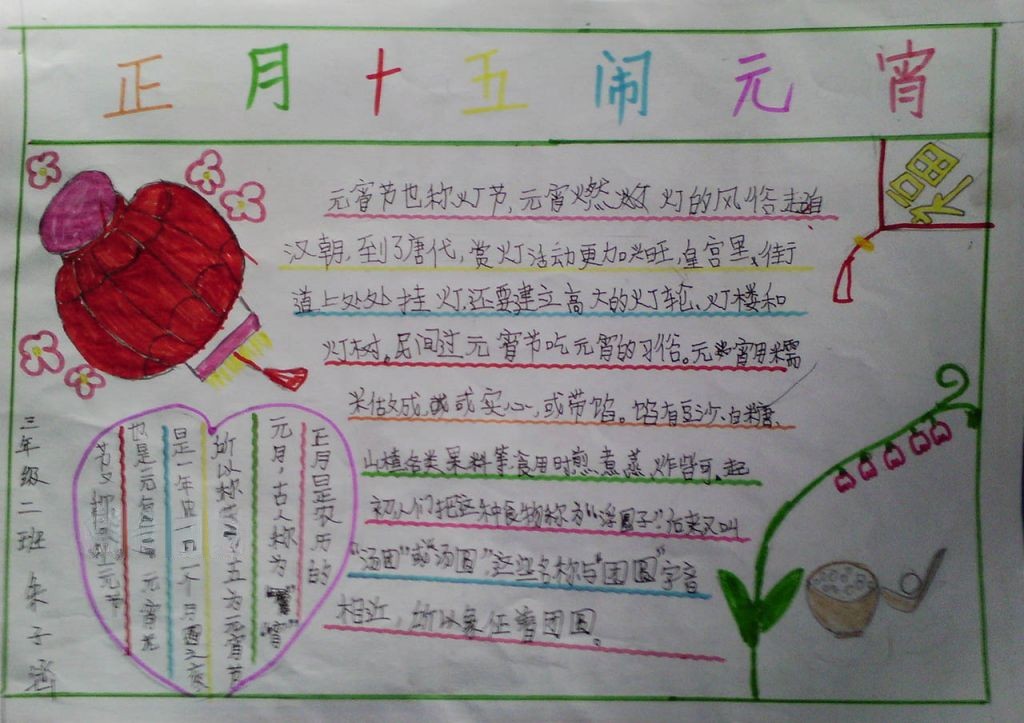 正月十五闹元宵
福
元宵节也称灯节,元宵燃灯的风俗起自
汉朝,到了唐代,赏灯活动更加兴旺,皇宫里、街
道上处处挂灯,还要建立高大的灯轮、灯楼和
灯树。民间过元宵节吃元宵的习俗。元宵用糯
米做成,或实心,或带馅。馅有豆沙、白糖、
山楂各类果料等,食用时煎、煮、蒸、炸皆可。起
初,人们把这种食物称为“浮圆子”,后来又叫
“汤团”或“汤圆”,这些名称与“团圆”字音
相近,所以象征着团圆。
正月是农历的
元月,古人称为“宵”
所以称 五为元宵节
是一年中一 个月圆之夜
也是 元 元宵
节又称 上元节
三年级二班 朱子涵